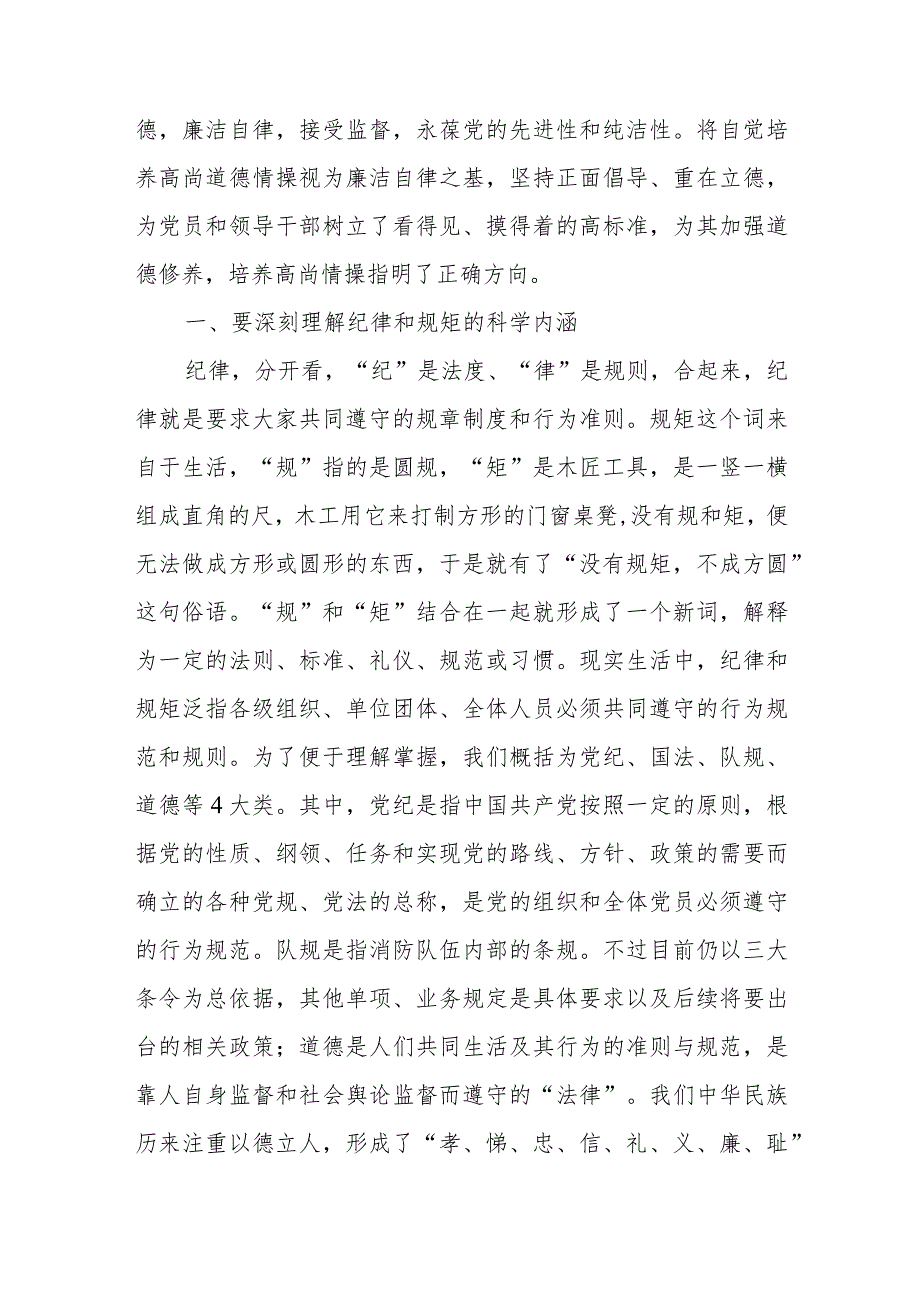 德，廉洁自律，接受监督，永葆党的先进性和纯洁性。将自觉培
养高尚道德情操视为廉洁自律之基，坚持正面倡导、重在立德，
为党员和领导干部树立了看得见、摸得着的高标准，为其加强道
德修养，培养高尚情操指明了正确方向。
一、要深刻理解纪律和规矩的科学内涵
纪律，分开看，“纪”是法度、“律”是规则，合起来，纪
律就是要求大家共同遵守的规章制度和行为准则。规矩这个词来
自于生活，“规”指的是圆规，“矩”是木匠工具，是一竖一横
组成直角的尺，木工用它来打制方形的门窗桌凳,没有规和矩，便
无法做成方形或圆形的东西，于是就有了“没有规矩，不成方圆”
这句俗语。“规”和“矩”结合在一起就形成了一个新词，解释
为一定的法则、标准、礼仪、规范或习惯。现实生活中，纪律和
规矩泛指各级组织、单位团体、全体人员必须共同遵守的行为规
范和规则。为了便于理解掌握，我们概括为党纪、国法、队规、
道德等4大类。其中，党纪是指中国共产党按照一定的原则，根
据党的性质、纲领、任务和实现党的路线、方针、政策的需要而
确立的各种党规、党法的总称，是党的组织和全体党员必须遵守
的行为规范。队规是指消防队伍内部的条规。不过目前仍以三大
条令为总依据，其他单项、业务规定是具体要求以及后续将要出
台的相关政策；道德是人们共同生活及其行为的准则与规范，是
靠人自身监督和社会舆论监督而遵守的“法律”。我们中华民族
历来注重以德立人，形成了“孝、悌、忠、信、礼、义、廉、耻”